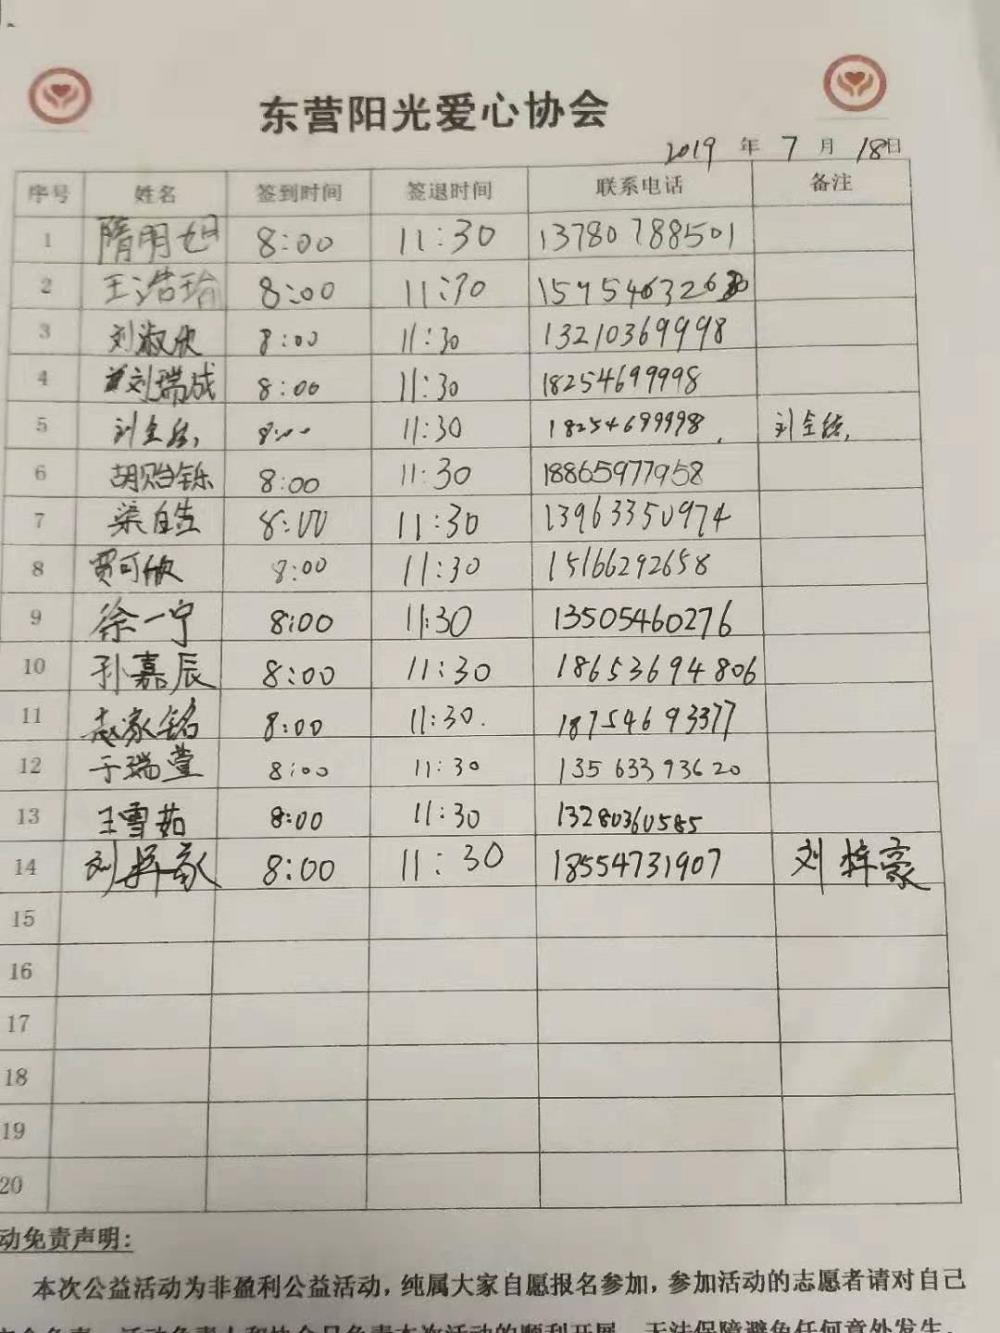 东营阳光爱心协会
2019 年 7 月 18日
序号 姓名 签到时间 签退时间 联系电话 备注
1 隋明妲 8:00 11:30 13780788501
2 王浩瑜 8:00 11:30
3 刘淑欣 8:00 11:30 13210369998
4 刘瑞成 8:00 11:30 18254699998
5 8:00 11:30 18254699998
6 胡贻铄 8:00 11:30 18865977958
7 8:00 11:30 13963350974
8 贾可欣 8:00 11:30 15166292658
9 徐一宁 8:00 11:30 13505460276
10 孙嘉辰 8:00 11:30 18653694806
11 赵家铭 8:00 11:30. 18754693377
12 于瑞萱 8:00 11:30 13563393620
13 王雪茹 8:00 11:30 13280360585
14 刘梓豪 8:00 11:30 18554731907 刘梓豪
15
16
17
18
19
20
动免责声明：
本次公益活动为非盈利公益活动，纯属大家自愿报名参加，参加活动的志愿者请对自己
无法保障避免任何意外发生。